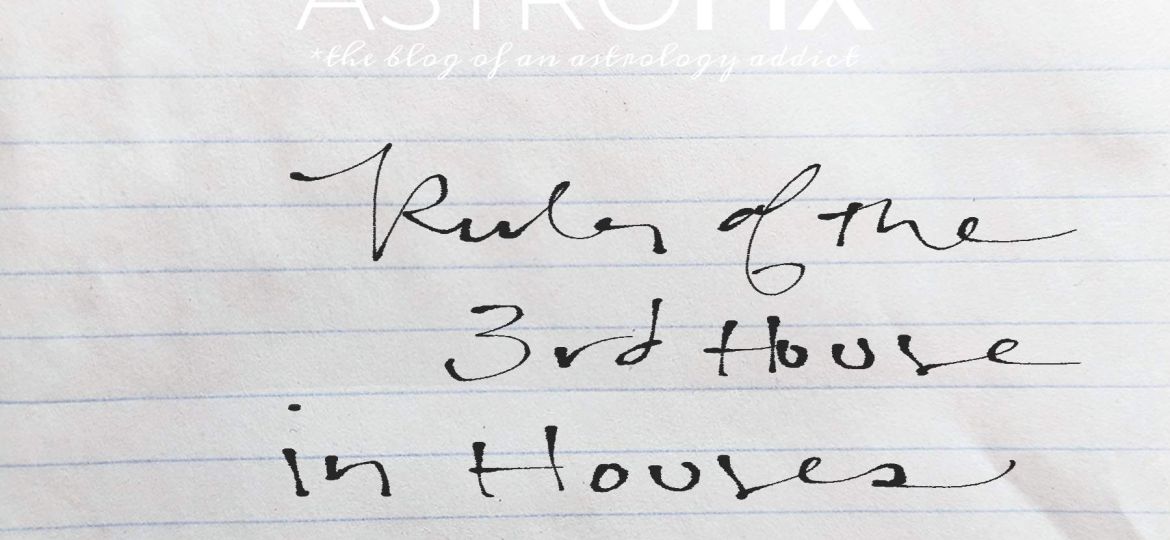 ASTROFIX
*the blog of an astrology addict
Ruler of the
3rd House
in Houses